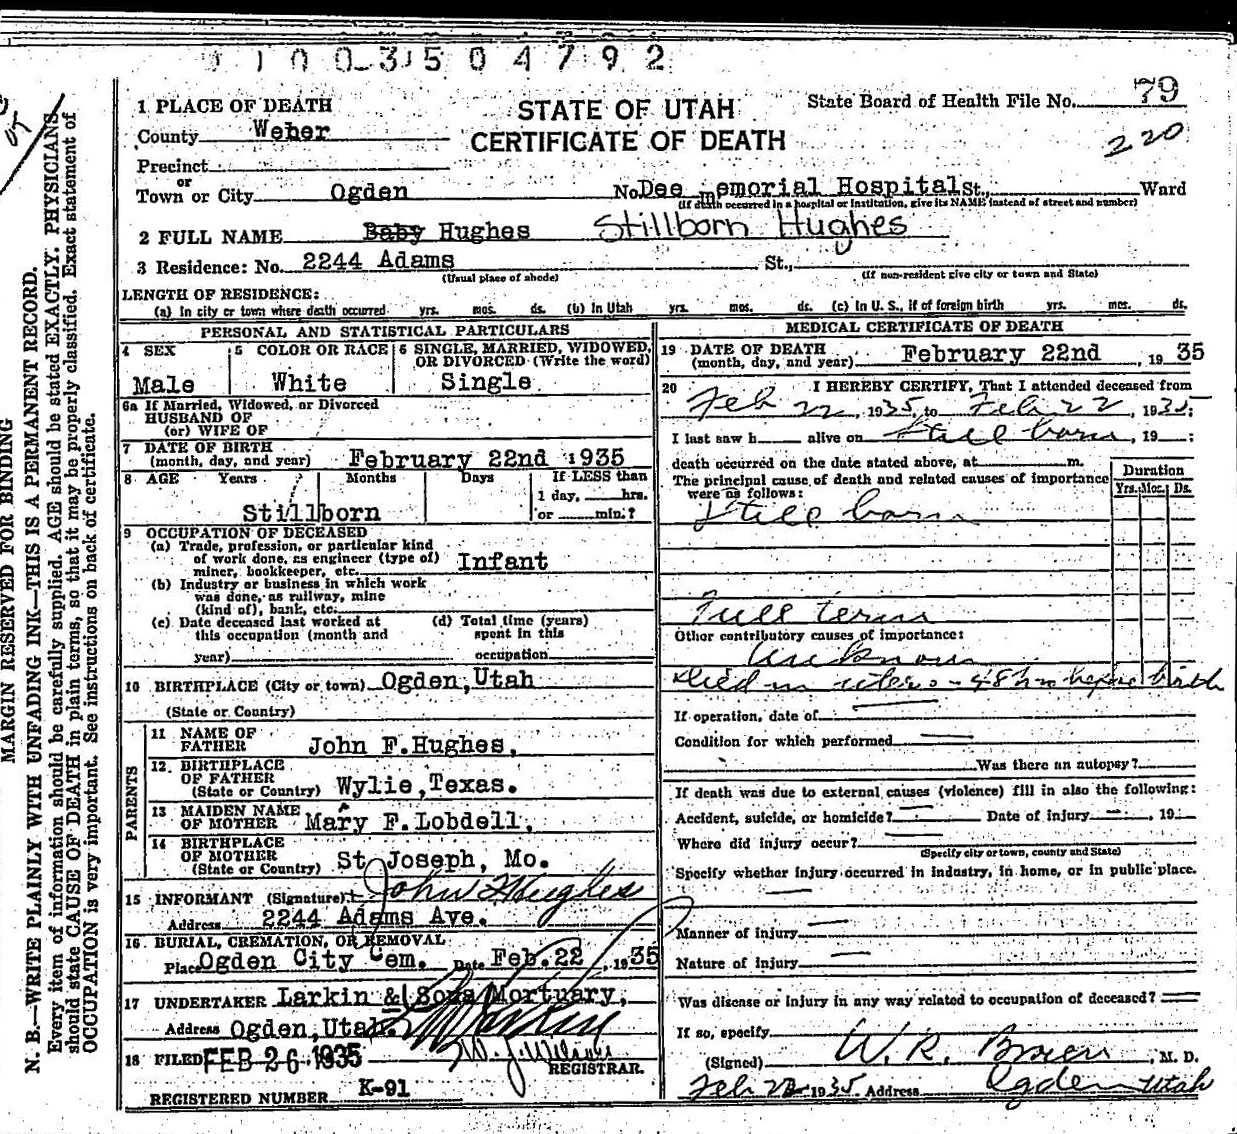 1003504792
1 PLACE OF DEATH
STATE OF UTAH
CERTIFICATE OF DEATH
State Board of Health File No. 79
220
County Weber
Precinct
or
Town or City Ogden No. Dee memorial Hospital St., Ward
(If death occurred in a hospital or institution, give its NAME instead of street and number)
2 FULL NAME Baby Hughes Stillborn Hughes
3 Residence: No. 2244 Adams St.,
(Usual place of abode) (If non-resident give city or town and State)
LENGTH OF RESIDENCE:
(a) In city or town where death occurred. yrs. mos. ds. (b) In Utah yrs. mos. ds. (c) In U. S., if of foreign birth yrs. mos. ds.
PERSONAL AND STATISTICAL PARTICULARS
4 SEX Male
5 COLOR OR RACE White
6 SINGLE, MARRIED, WIDOWED, OR DIVORCED (Write the word) Single
6a If Married, Widowed, or Divorced
HUSBAND OF
(or) WIFE OF
7 DATE OF BIRTH
(month, day, and year) February 22nd 1935
8 AGE Years Months Days If LESS than
1 day, hrs.
or min.?
Stillborn
9 OCCUPATION OF DECEASED
(a) Trade, profession, or particular kind
of work done, as engineer (type of)
miner, bookkeeper, etc. Infant
(b) Industry or business in which work
was done, as railway, mine
(kind of), bank, etc.
(c) Date deceased last worked at
this occupation (month and
year)
(d) Total time (years)
spent in this
occupation
10 BIRTHPLACE (City or town) Ogden, Utah
(State or Country)
PARENTS
11 NAME OF
FATHER John F. Hughes,
12 BIRTHPLACE
OF FATHER
(State or Country) Wylie, Texas.
13 MAIDEN NAME
OF MOTHER Mary F. Lobdell,
14 BIRTHPLACE
OF MOTHER
(State or Country) St Joseph, Mo.
15 INFORMANT (Signature) John F Hughes
Address 2244 Adams Ave.
16 BURIAL, CREMATION, OR REMOVAL
Place Ogden City Cem. Date Feb. 22, 1935
17 UNDERTAKER Larkin & Sons Mortuary,
Address Ogden, Utah.
18 FILED FEB 26 1935
REGISTRAR.
REGISTERED NUMBER K-91
MEDICAL CERTIFICATE OF DEATH
19 DATE OF DEATH
(month, day, and year) February 22nd, 1935
20 I HEREBY CERTIFY, That I attended deceased from
Feb 22, 1935, to Feb 22, 1935;
I last saw h alive on Still born, 19 ;
death occurred on the date stated above, at m.
The principal cause of death and related causes of importance
were as follows:
Duration
Yrs. Mos. Ds.
Still born
Full term
Other contributory causes of importance:
Unknown
Died in utero - 48 hrs before birth
If operation, date of
Condition for which performed
Was there an autopsy?
If death was due to external causes (violence) fill in also the following:
Accident, suicide, or homicide? Date of injury , 19
Where did injury occur?
(Specify city or town, county and State)
Specify whether injury occurred in industry, in home, or in public place.
Manner of injury
Nature of injury
Was disease or injury in any way related to occupation of deceased?
If so, specify
(Signed) W. R. Brown, M. D.
Feb 22 1935 Address Ogden Utah
MARGIN RESERVED FOR BINDING
N. B.—WRITE PLAINLY WITH UNFADING INK—THIS IS A PERMANENT RECORD.
Every item of information should be carefully supplied. AGE should be stated EXACTLY. PHYSICIANS
should state CAUSE OF DEATH in plain terms, so that it may be properly classified. Exact statement of
OCCUPATION is very important. See instructions on back of certificate.